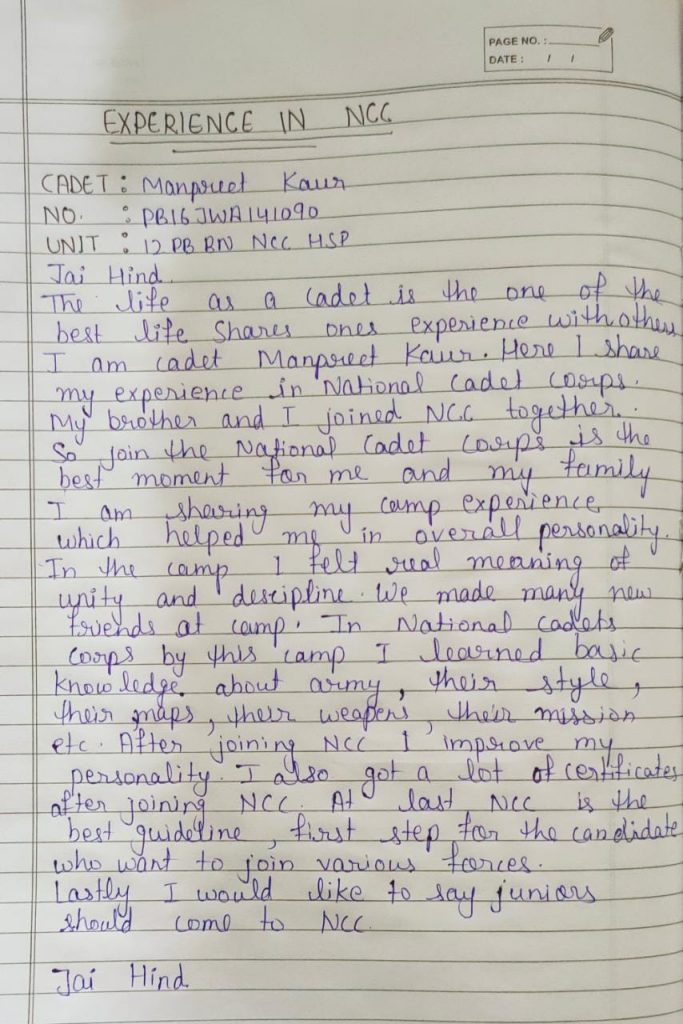 PAGE NO. :
DATE : / /
EXPERIENCE IN NCC
CADET : Manpreet Kaur
NO. : PB16JWA141090
UNIT : 12 PB BN NCC HSP
Jai Hind.
The life as a cadet is the one of the
best life shares ones experience with others
I am cadet Manpreet Kaur. Here I share
my experience in National Cadet Coorps.
My brother and I joined NCC together.
So join the National Cadet Coorps is the
best moment for me and my family
I am sharing my camp experience
which helped me in overall personality.
In the camp I felt real meaning of
unity and descipline. We made many new
friends at camp. In National cadets
coorps by this camp I learned basic
knowledge about army, their style,
their maps, their weapens, their mission
etc. After joining NCC I improve my
personality. I also got a lot of certificates
after joining NCC. At last, NCC is the
best guideline, first step for the candidate
who want to join various forces.
Lastly I would like to say juniors
should come to NCC.
Jai Hind